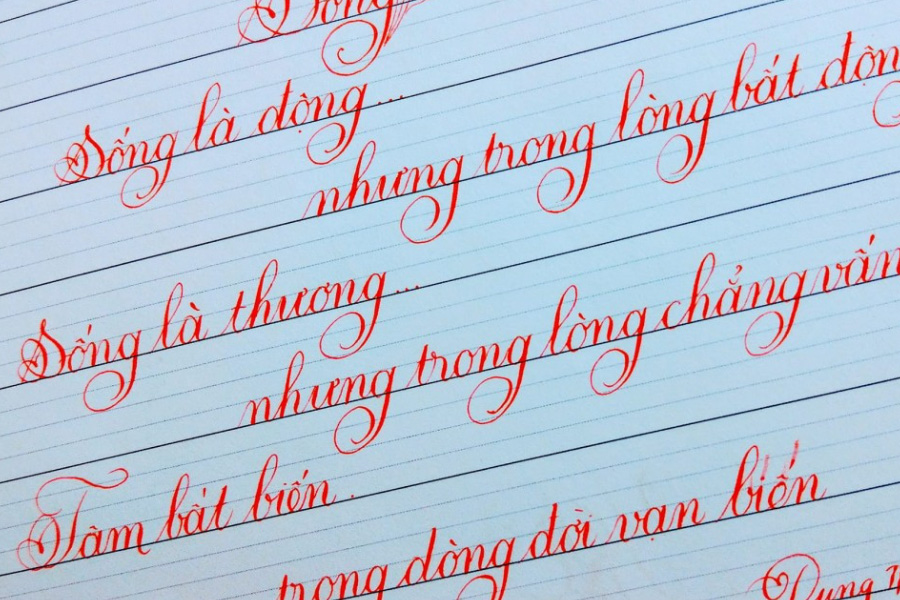 Sống là động...
nhưng trong lòng bất độn
Sống là thương...
nhưng trong lòng chẳng vấn
Tâm bất biến.
trong dòng đời vạn biến
Dung